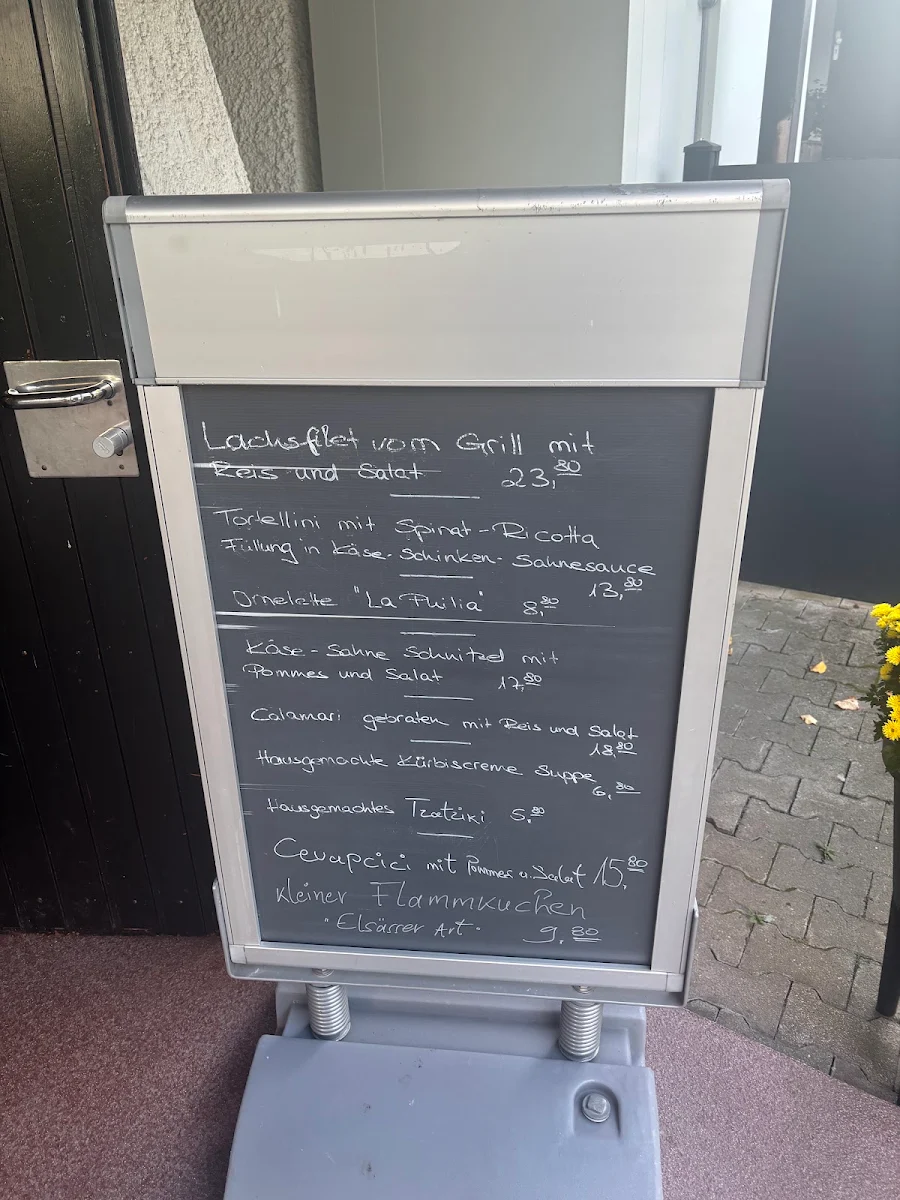 Lachsfilet vom Grill mit
Reis und Salat 23,80
Tortellini mit Spinat-Ricotta
Füllung in Käse-Schinken-Sahnesauce
13,80
Omelette "La Philia" 8,80
Käse-Sahne Schnitzel mit
Pommes und Salat 17,80
Calamari gebraten mit Reis und Salat
18,80
Hausgemachte Kürbiscreme Suppe
6,80
Hausgemachtes Tzatziki 5,80
Cevapcici mit Pommes u. Salat 15,80
Kleiner Flammkuchen
"Elsässer Art" 9,80